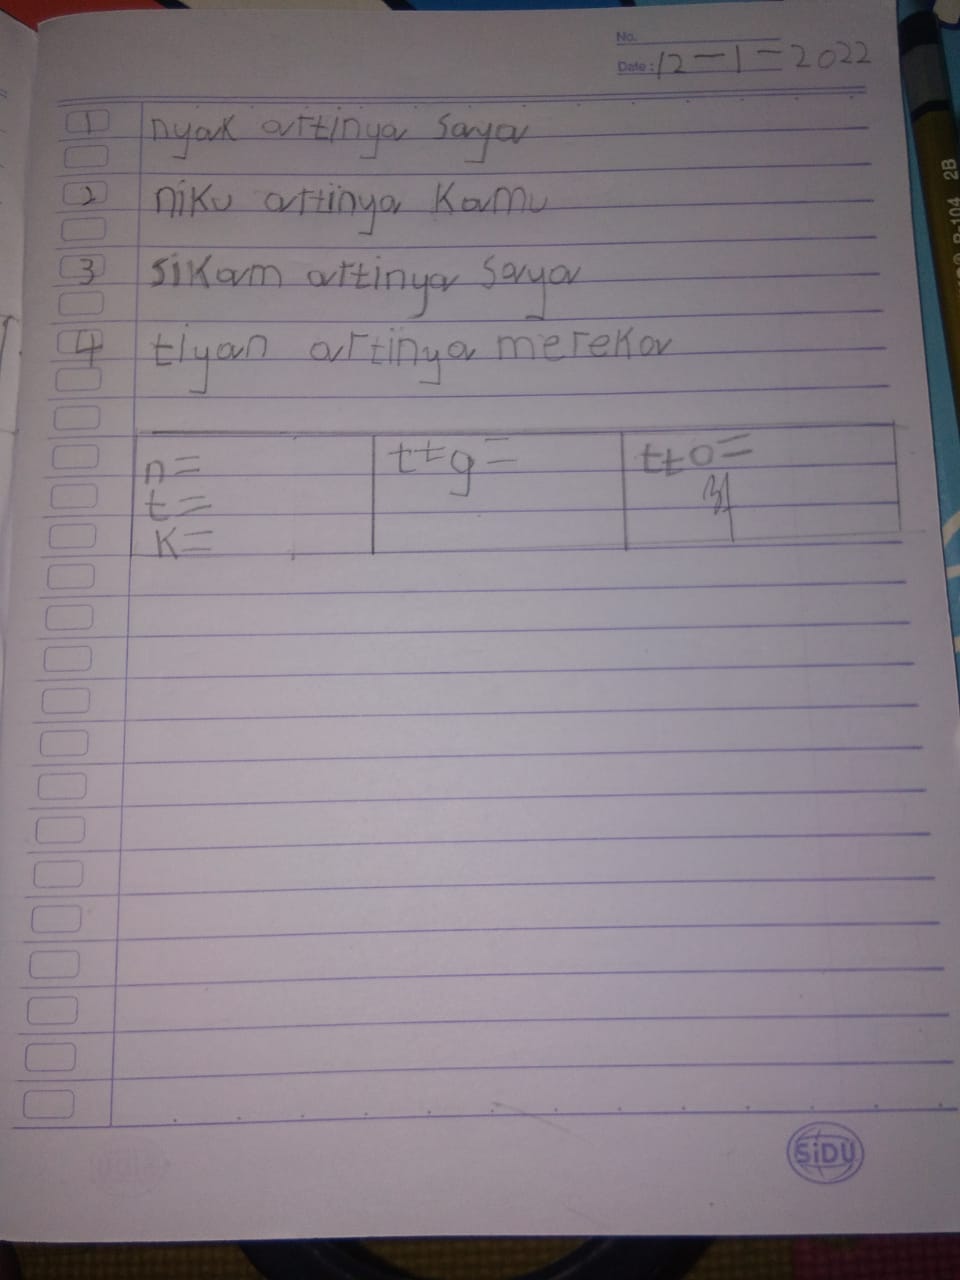 No.
Date: 12-1-2022
1 nyak artinya saya
2 niku artinya kamu
3 sikam artinya saya
4 tiyan artinya mereka
n= ttg= tto=
t=
k=
SiDU